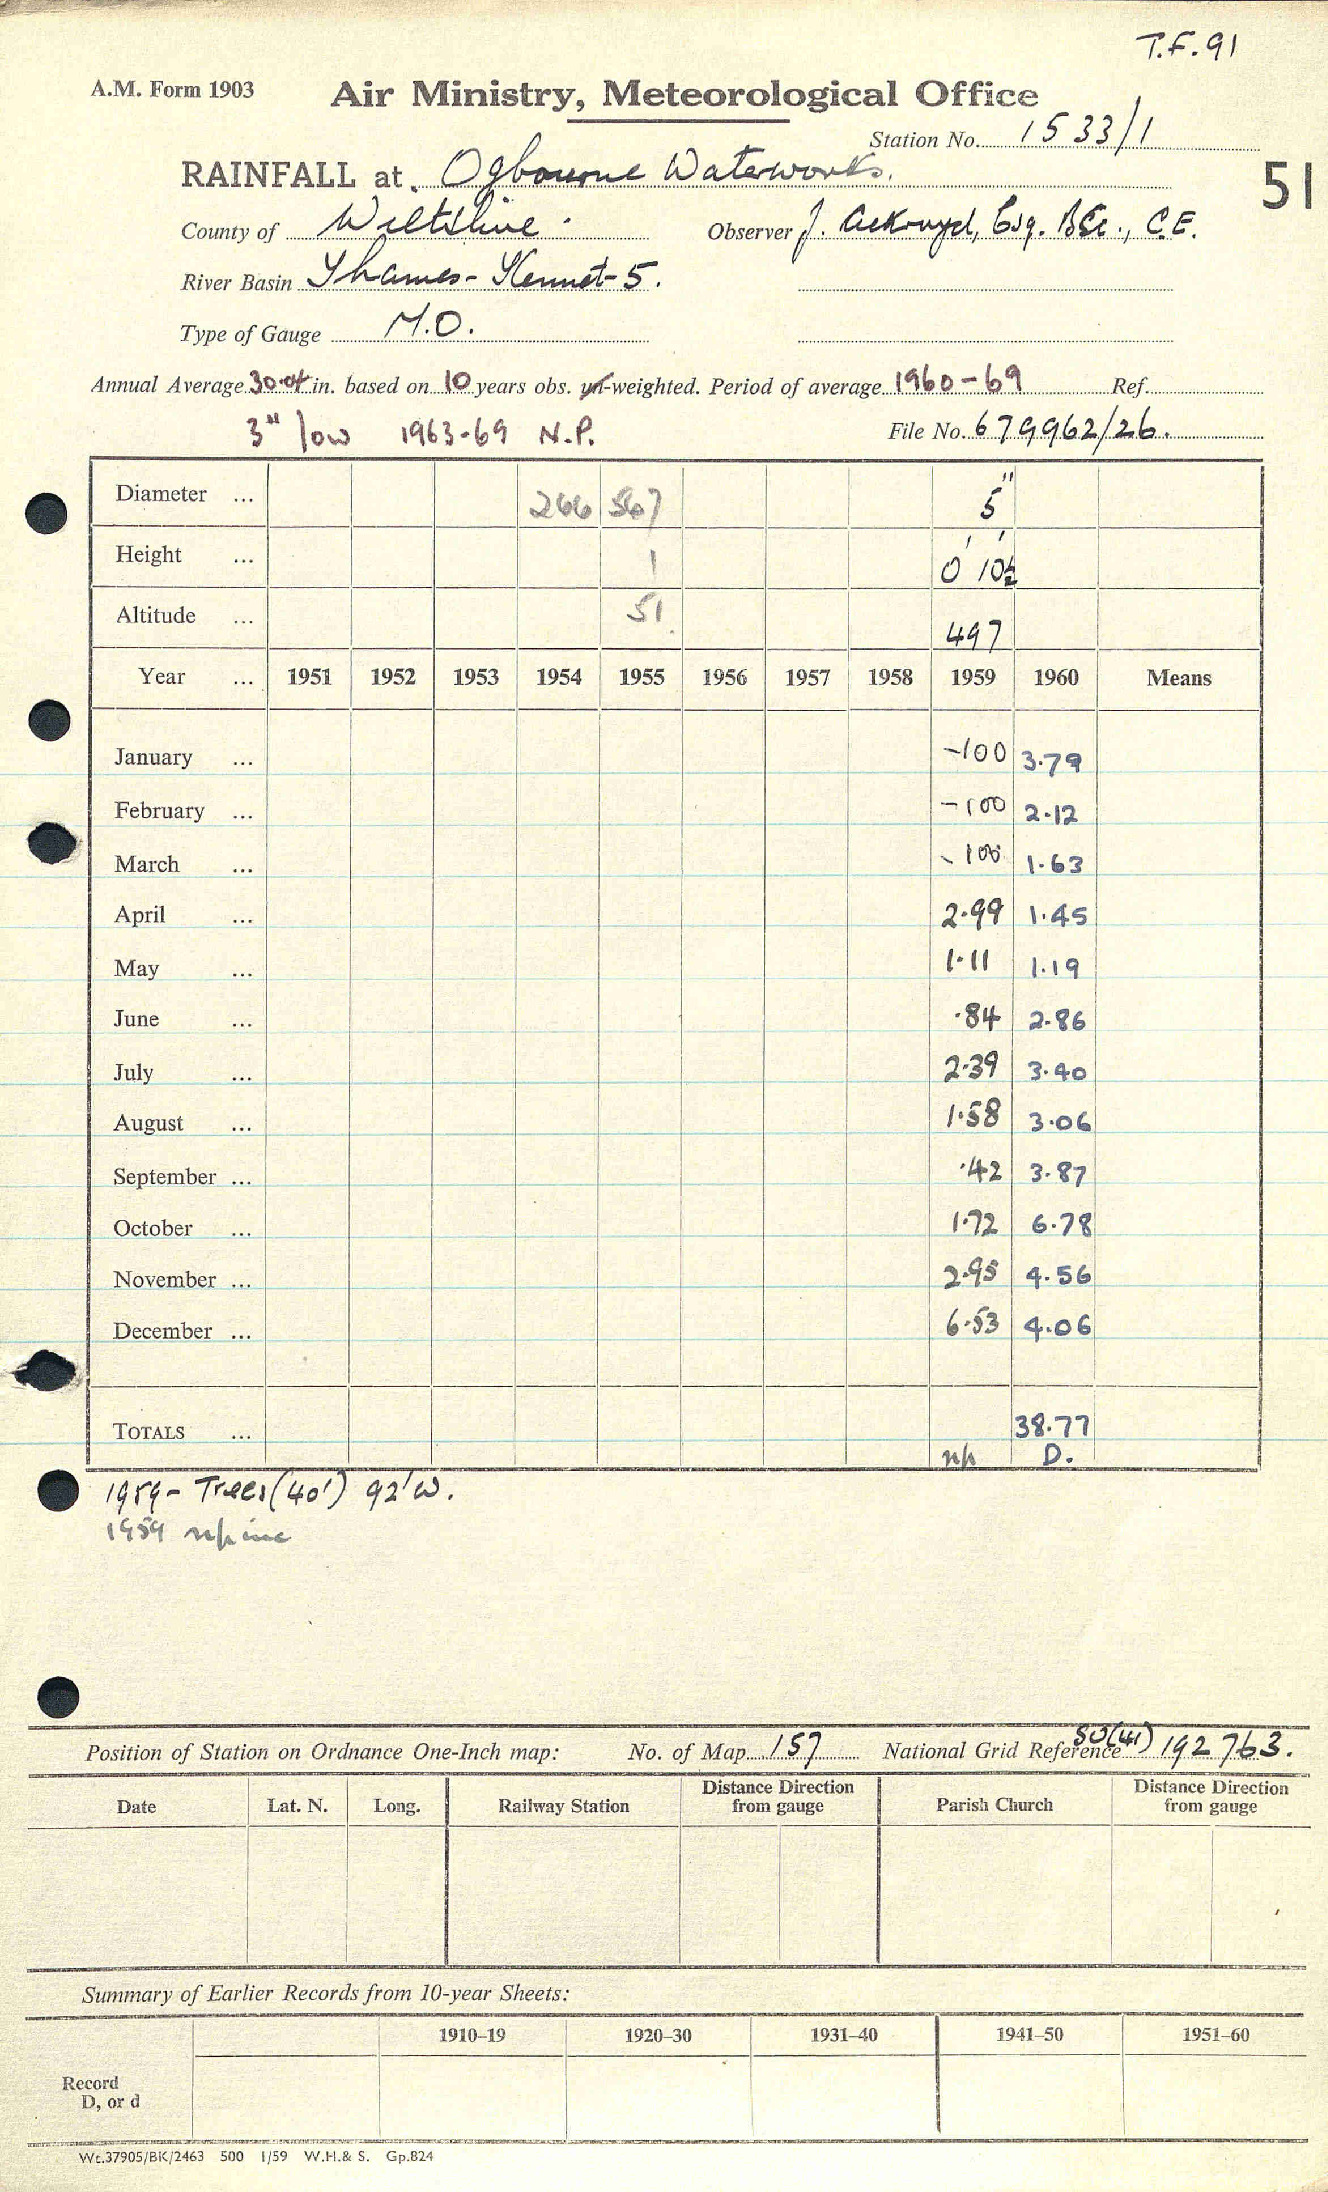 T.F.91
A.M. Form 1903 Air Ministry, Meteorological Office
Station No. 1533/1
RAINFALL at Ogbourne Waterworks. 51
County of Wiltshire. Observer J. Ackroyd, Esq. BSc., C.E.
River Basin Thames-Kennet-5.
Type of Gauge M.O.
Annual Average 30.04 in. based on 10 years obs. un-weighted. Period of average 1960-69 Ref.
3" low 1963-69 N.P. File No. 679962/26.
Diameter ... 266 567 5"
Height ... 1 0' 10½'
Altitude ... 51 497
Year ... 1951 1952 1953 1954 1955 1956 1957 1958 1959 1960 Means
January ... -100 3.79
February ... -100 2.12
March ... -100 1.63
April ... 2.99 1.45
May ... 1.11 1.19
June ... .84 2.86
July ... 2.39 3.40
August ... 1.58 3.06
September ... .42 3.87
October ... 1.72 6.78
November ... 2.95 4.56
December ... 6.53 4.06
TOTALS ... 38.77
np D.
1959- Trees (40') 92'W.
1959 np inc
Position of Station on Ordnance One-Inch map: No. of Map 157 National Grid Reference SU(41) 192763.
Date Lat. N. Long. Railway Station Distance Direction from gauge Parish Church Distance Direction from gauge
Summary of Earlier Records from 10-year Sheets:
1910–19 1920–30 1931–40 1941–50 1951–60
Record
D, or d
Wt.37905/BK/2463 500 1/59 W.H.& S. Gp.824